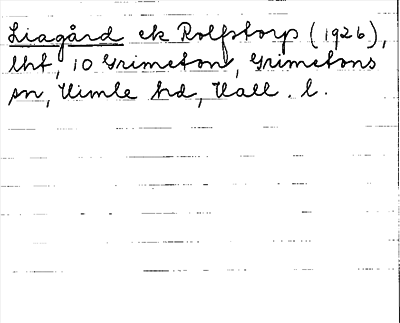 Liagård ek Rolfstorp (1926),
lht, 10 Grimeton, Grimetons
sn, Himle hd, Hall. l.